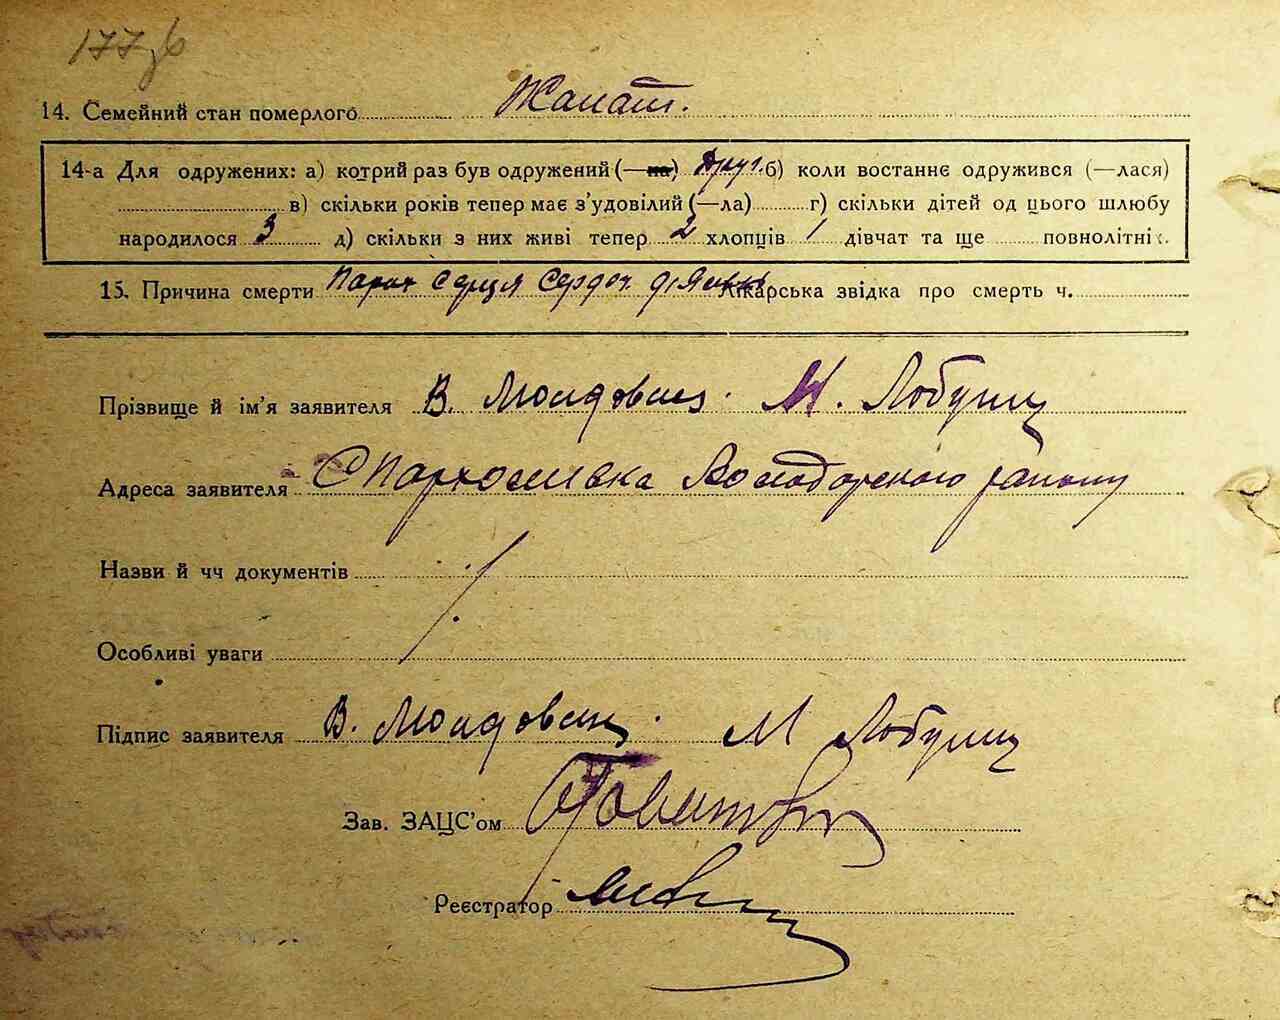 177
14. Семейний стан померлого Жонат.
14-а Для одружених: а) котрий раз був одружений (—на) друг. б) коли востаннє одружився (—лася)
в) скільки років тепер має з'удовілий (—ла) г) скільки дітей од цього шлюбу
народилося 3 д) скільки з них живі тепер 2 хлопців 1 дівчат та ще повнолітні
15. Причина смерти серця Лікарська звідка про смерть ч.
Прізвище й ім'я заявителя В. М.
Адреса заявителя С Пархомівка Володарского району
Назви й чч документів
Особливі уваги
Підпис заявителя В. М
Зав. ЗАЦС'ом
Реєстратор